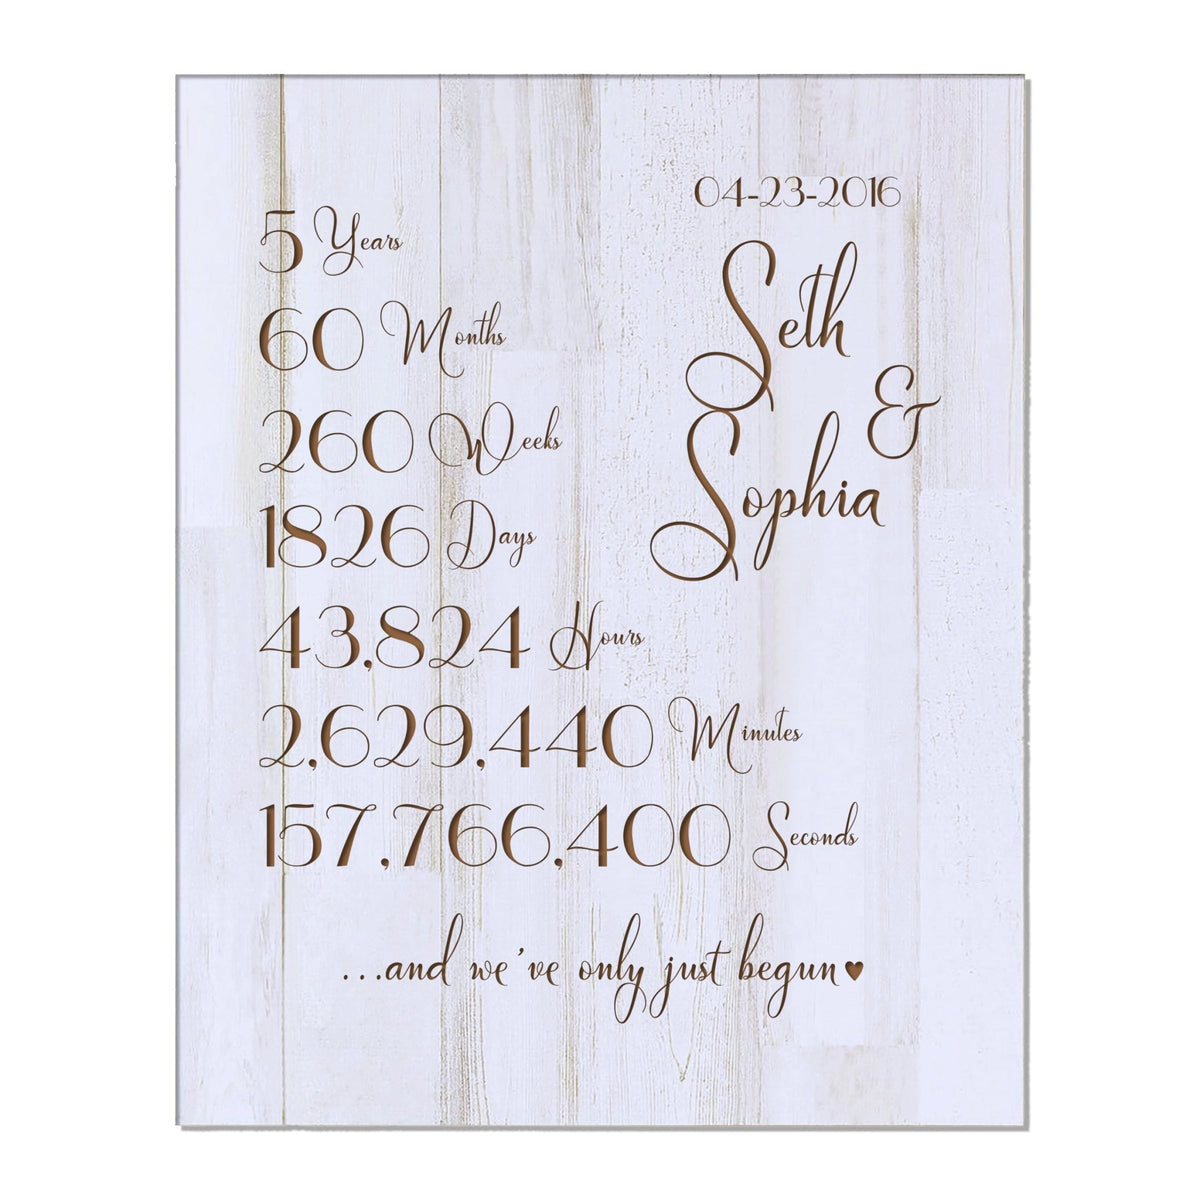 04-23-2016
Seth
&
Sophia
5 Years
60 Months
260 Weeks
1826 Days
43,824 Hours
2,629,440 Minutes
157,766,400 Seconds
...and we've only just begun♥